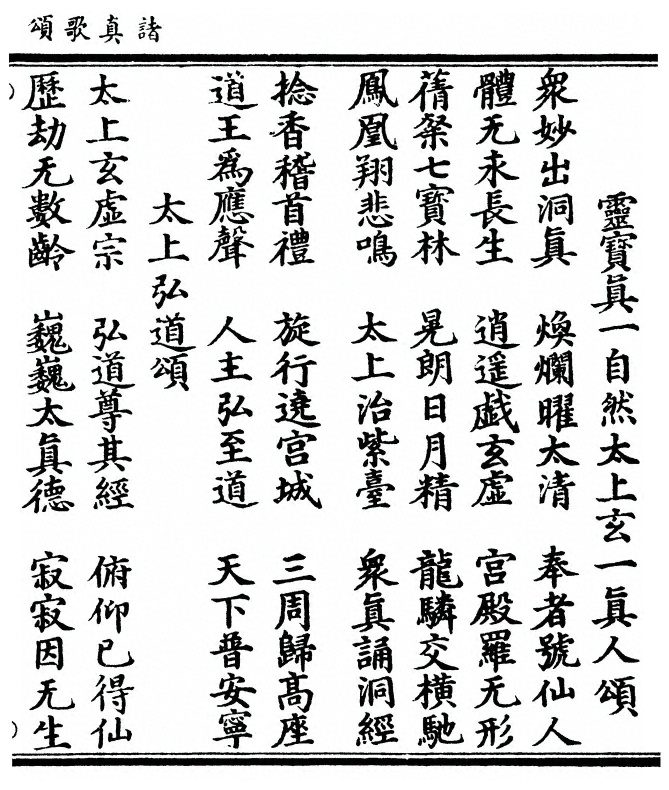 諸真歌頌
靈寶眞一自然太上玄一眞人頌
衆妙出洞眞 煥爛曜太清 奉者號仙人
體无永長生 逍遥戯玄虚 宫殿羅无形
蒨粲七寶林 晃朗日月精 龍驎交横馳
鳳凰翔悲鳴 太上治紫臺 衆眞誦洞經
捻香稽首禮 旋行遶宫城 三周歸髙座
道王爲應聲 人主弘至道 天下普安寧
太上弘道頌
太上玄虚宗 弘道尊其經 俯仰已得仙
歷劫无數齡 巍巍太眞德 寂寂因无生